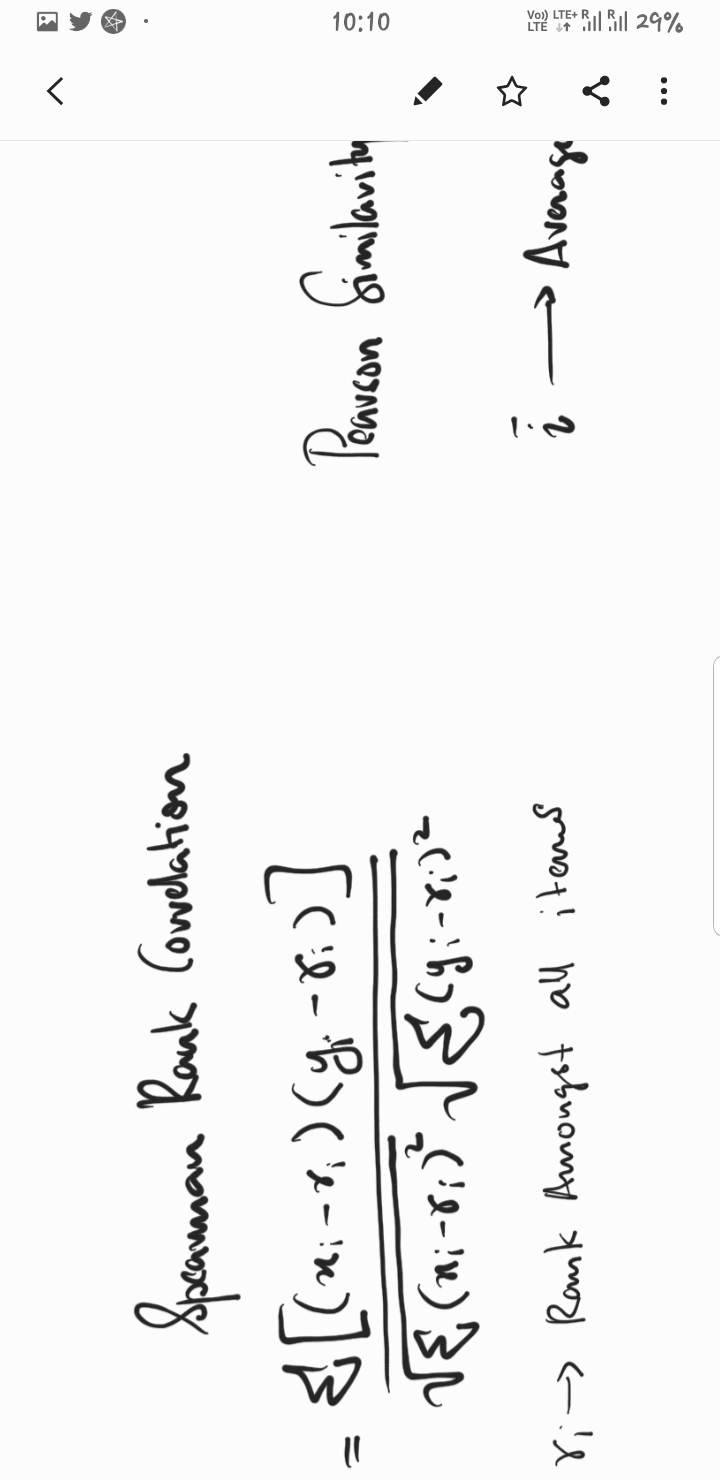 10:10
Vo)) LTE LTE+ R R 29%
Spearman Rank Correlation
= Σ[(xi - ri)(yi - ri)]
√Σ(xi - ri)² √Σ(yi - ri)²
ri → Rank Amongst all items
Pearson Similarity
ī → Average